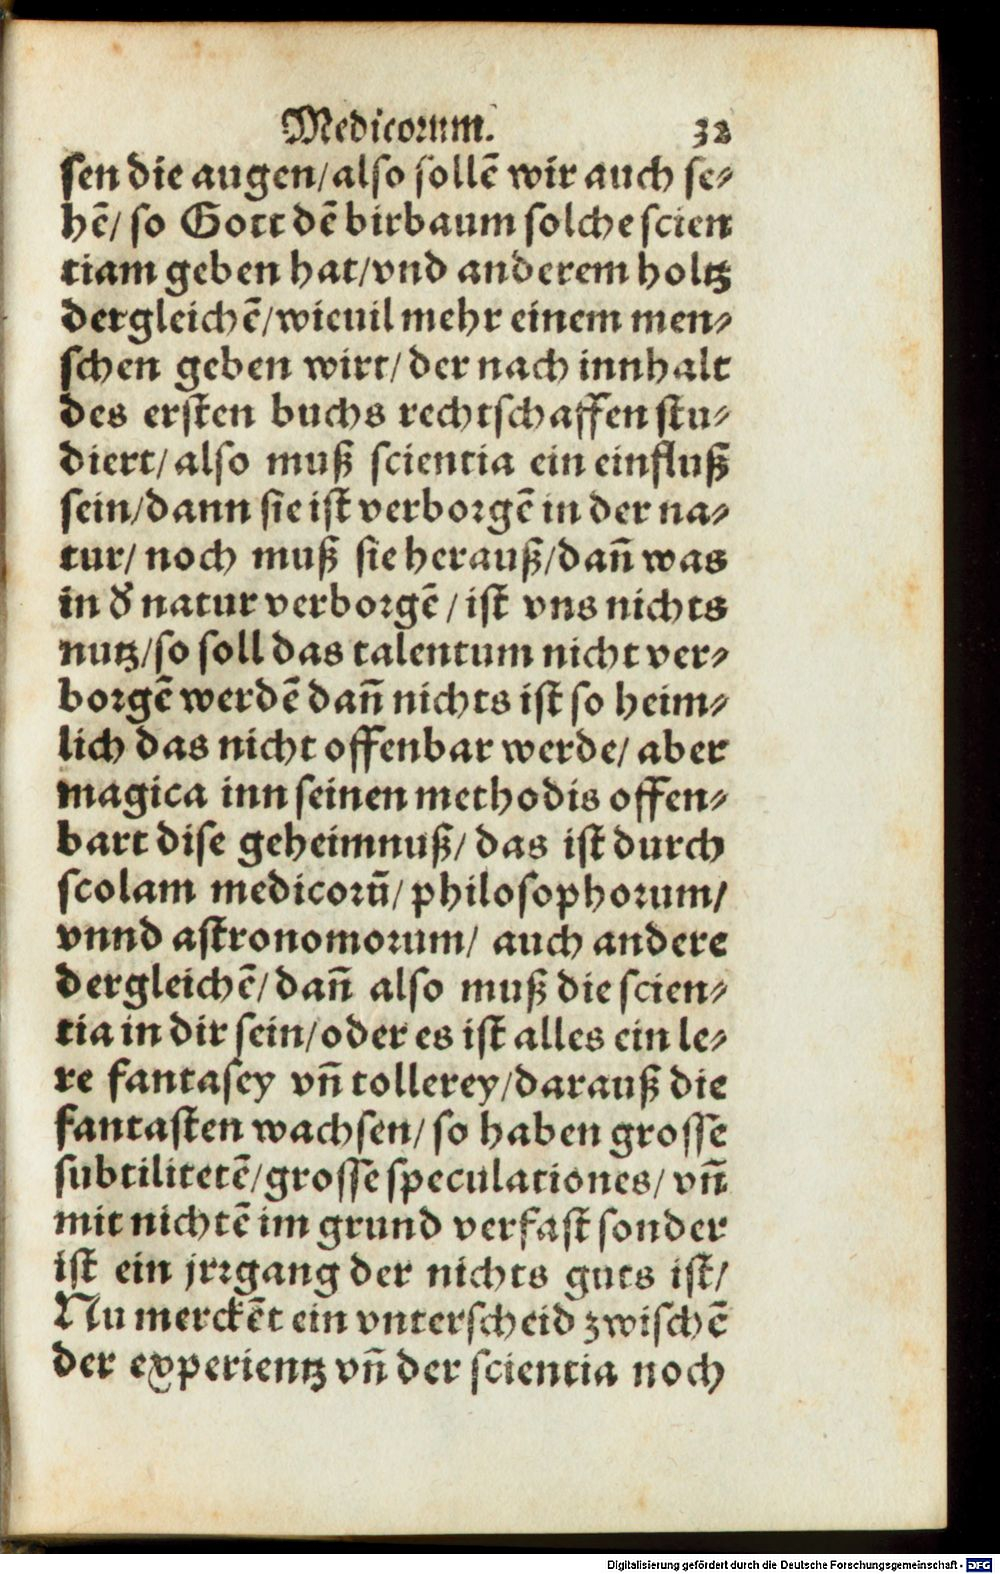 Medicorum. 32
sen die augen/also sollē wir auch se⸗
hē/ so Gott dē birbaum solche scien
tiam geben hat/vnd anderem holtz
dergleichē/wieuil mehr einem men⸗
schen geben wirt/der nach innhalt
des ersten buchs rechtschaffen stu⸗
diert/also muß scientia ein einfluß
sein/dann sie ist verborgē in der na⸗
tur/ noch muß sie herauß/dañ was
in d̕ natur verborgē/ist vns nichts
nutz/so soll das talentum nicht ver⸗
borgē werdē dañ nichts ist so heim⸗
lich das nicht offenbar werde/ aber
magica inn seinen methodis offen⸗
bart dise geheimnuß/ das ist durch
scolam medicorū/philosophorum/
vnnd astronomorum/ auch andere
dergleichē/dañ also muß die scien⸗
tia in dir sein/oder es ist alles ein le⸗
re fantasey vñ tollerey/darauß die
fantasten wachsen/so haben grosse
subtilitetē/grosse speculationes/ vñ
mit nichtē im grund verfast sonder
ist ein jrrgang der nichts guts ist/
Nu merckēt ein vnterscheid zwischē
der experientz vñ der scientia noch
Digitalisierung gefördert durch die Deutsche Forschungsgemeinschaft - DFG